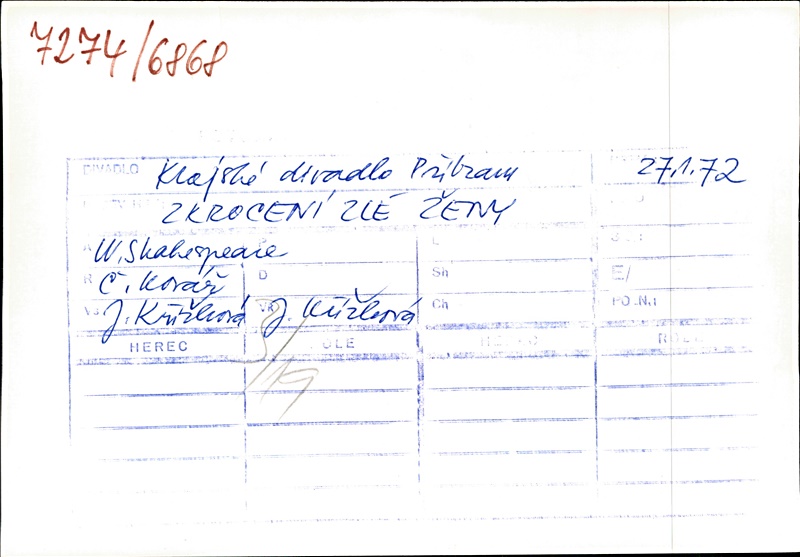 7274/6868
DIVADLO Krajské divadlo Příbram 27.1.72
ZKROCENÍ ZLÉ ŽENY
A W. Shakespeare P L
R Č. Kovář D Sh E/
J. Křížková VK J. Křížková Ch PO.N.:
HEREC ROLE